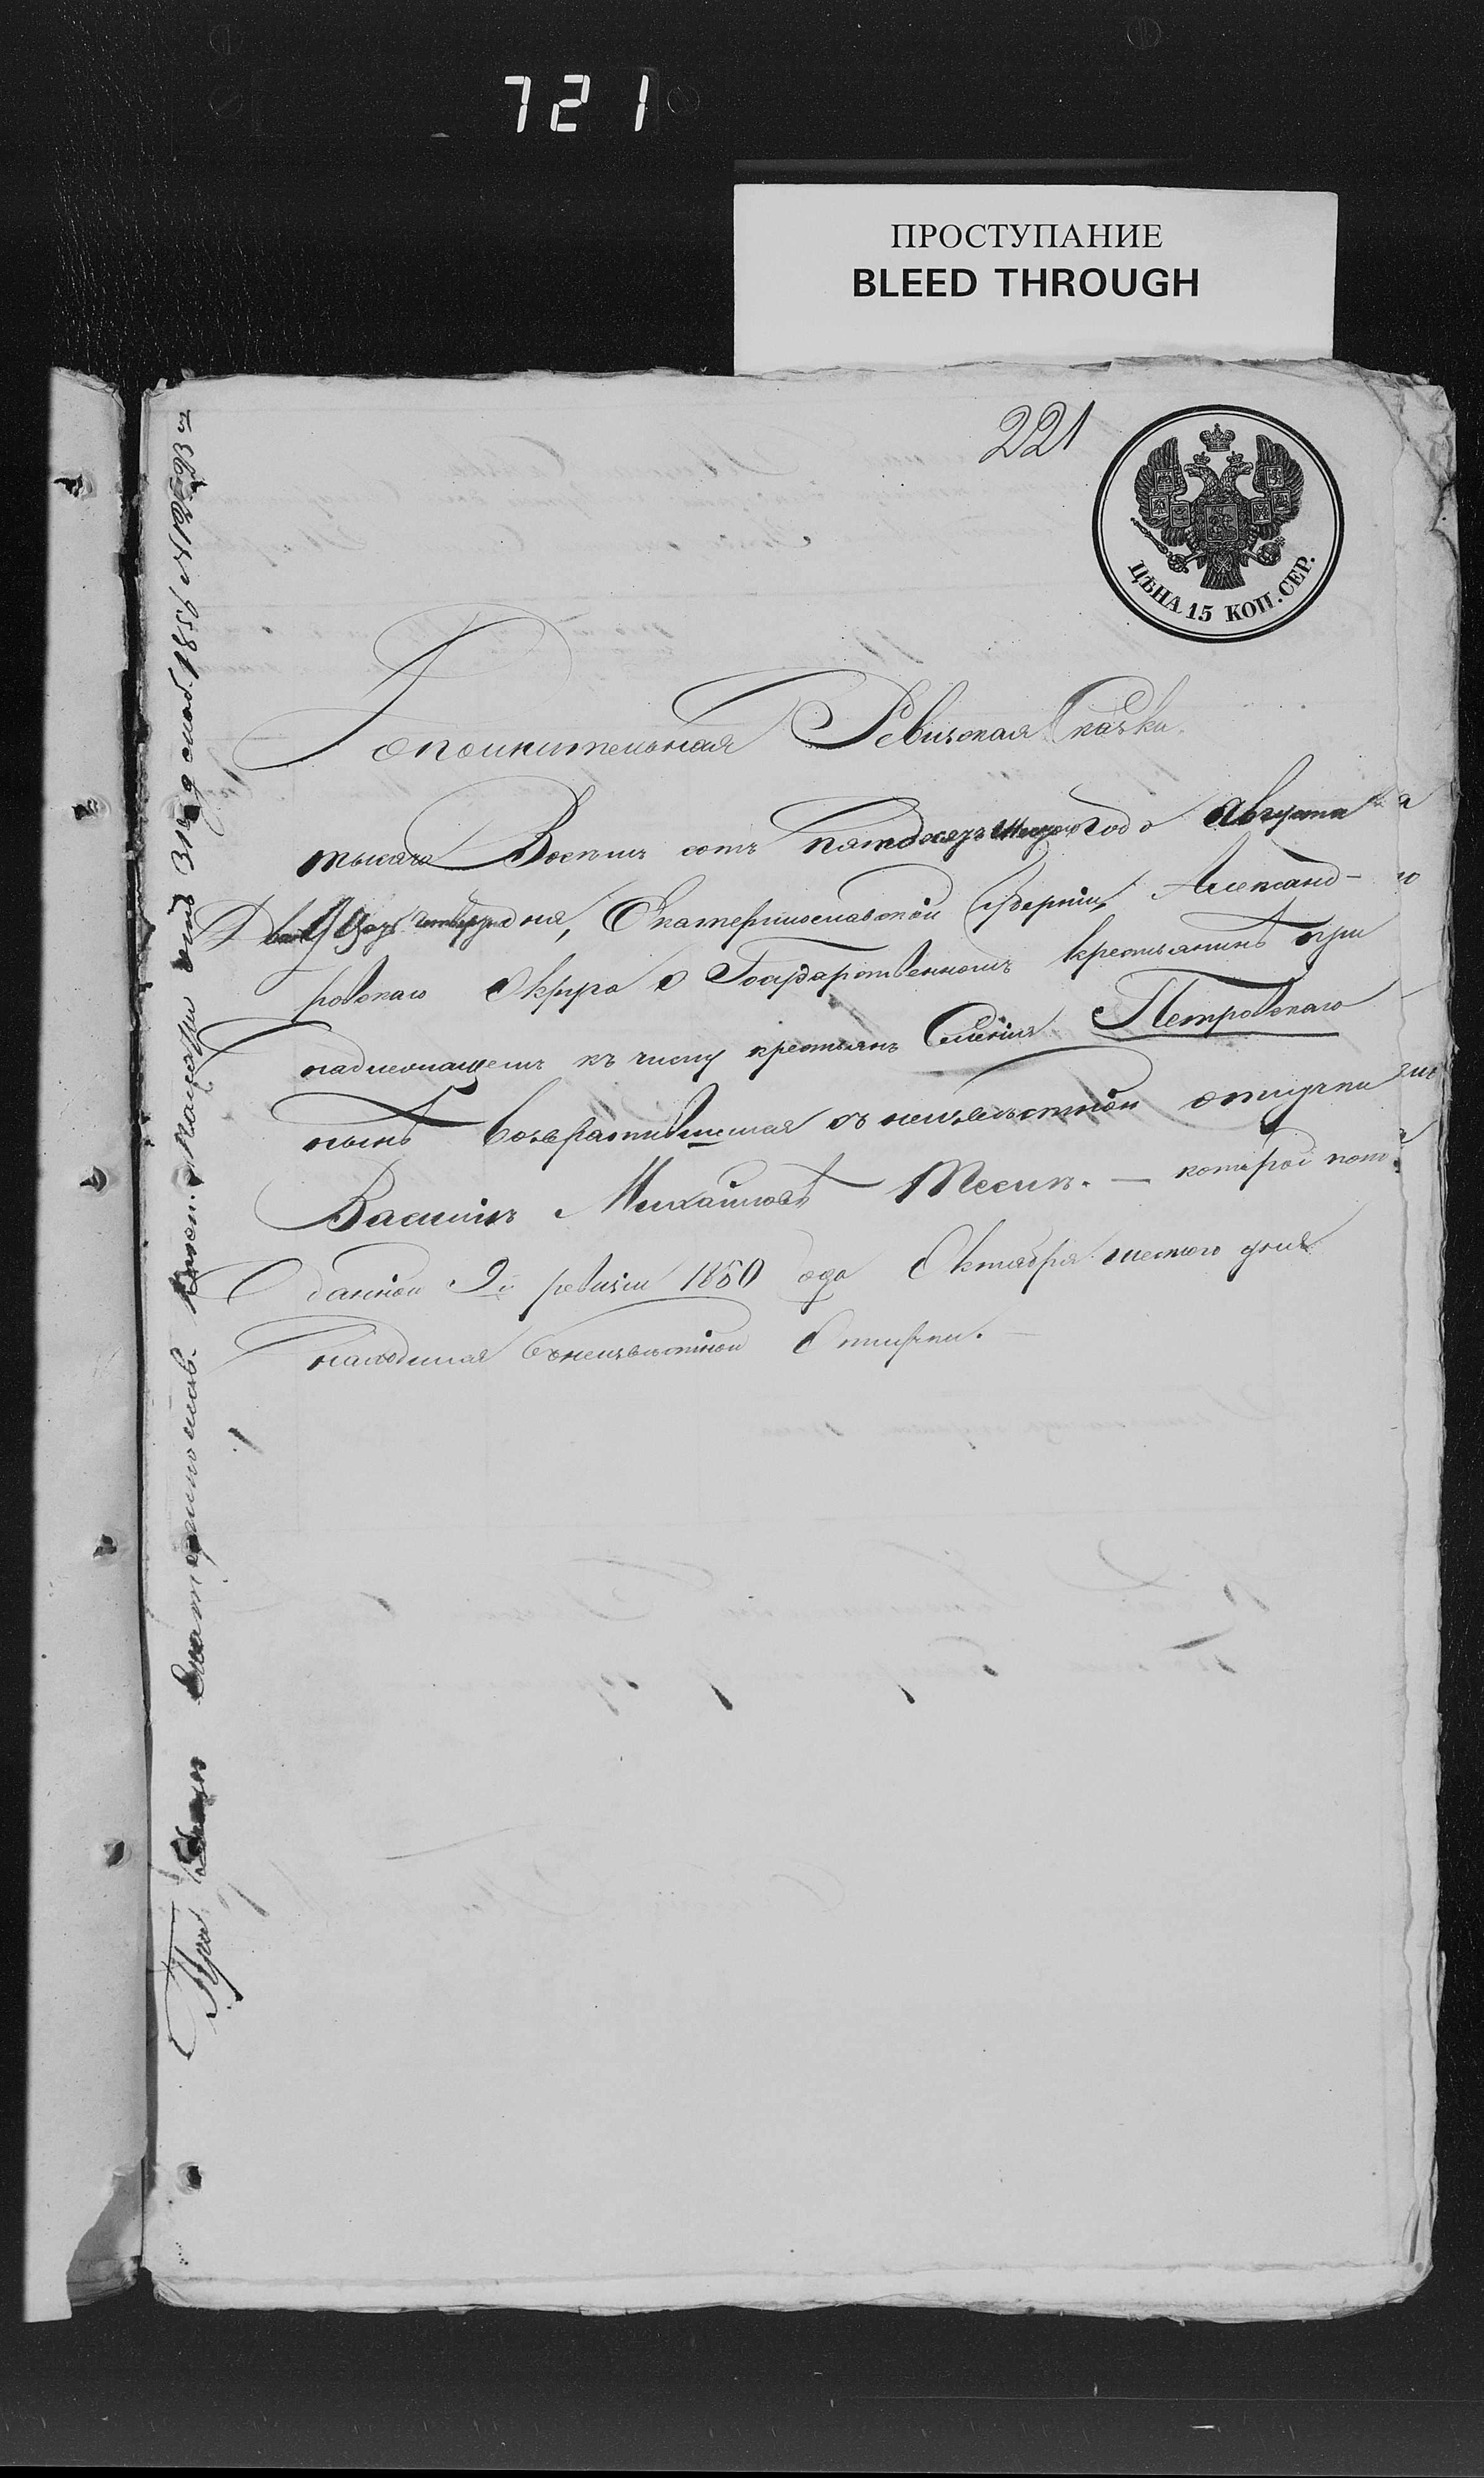 721
ПРОСТУПАНИЕ
BLEED THROUGH
221
ЦѢНА 15 КОП. СЕР.
Дополнительная Ревизская Сказка
тысяча Восемь сотъ пятдесятъ года Августа
Двадцать дня, Екатеринославской Губерніи, Александ-
ровскаго Округа о Государственномъ крестьянинѣ при
надлежащемъ къ числу крестьянъ Селенія Петровскаго
нынѣ возвратившемся съ неизвѣстной отлучки
Василіѣ Михайловѣ — которой по
данной 9й ревизіи 1850 года Октября шестого дня
находился въ неизвѣстной Отлучки.
При Екатеринослав. Казен. Палаты отъ 31 1859 N 12293